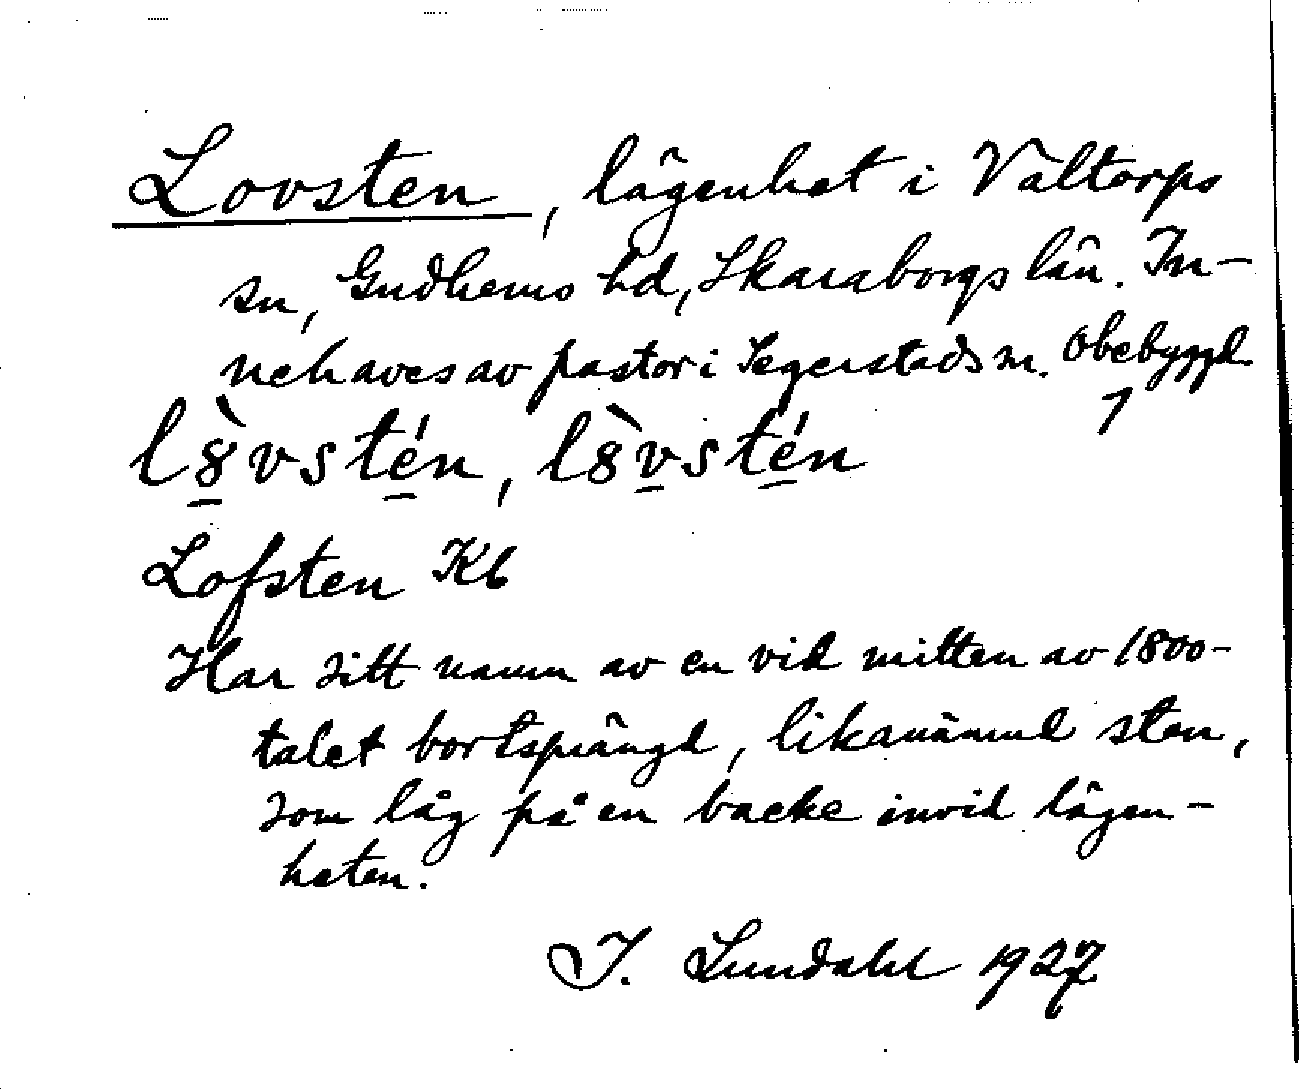 Lovsten, lägenhet i Valtorps
sn, Gudhems hd, Skaraborgs län. In-
nehaves av pastor i Segerstads sn. Obebyggd
l8̀vstén, l8̀vstén
Lofsten Kb
Har sitt namn av en vid mitten av 1800-
talet bortsprängd, likanämnd sten,
som låg på en backe invid lägen-
heten.
I. Lundahl 1927